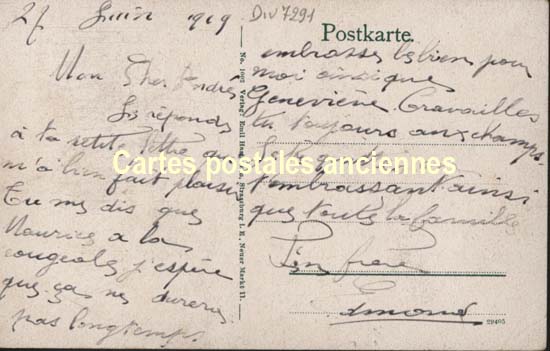 27 Juin 1919
Div 7291
Postkarte.
Mon Cher André
Je réponds
à ta petite lettre qui
m'a bien fait plaisir
Tu me dis que
Maurice a la
rougeole j'espère
que ça ne durera
pas longtemps.
No. 1002 Verlag: Emil Strassburg i. E., Neuer Markt 11.
embrasses les bien pour
moi ainsi que
Geneviève. Travailles
tu toujours aux champs.
t'embrassant ainsi
que toute la famille
Ton frère
Edmond
29405
Cartes postales anciennes